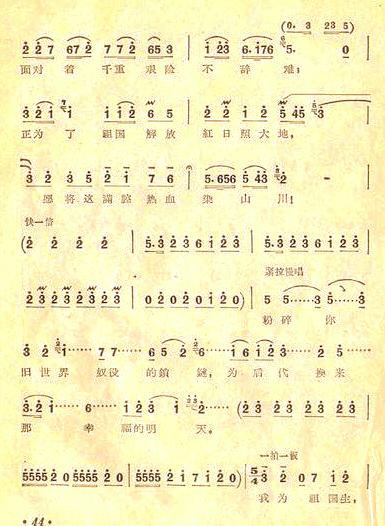 (0. 3 2 3 5)
2 2 7 6 7 2 7 7 2 6 5 3 | 1 2 3 6. 1 7 6 5. 0 |
面对着 千重 艰险 不 辞 难；
3 2 1 1 1 2 6 5 | 2 2 1 2 5 4 5 3
正为了 祖国 解放 紅日照大地，
3 2 3 5 2 1 7 6 | 5. 6 5 6 5 4 3 2 - |
愿将这满腔热血 染山川！
快一倍
(2 2 2 2 | 5. 3 2 3 6 1 2 3 | 5. 3 2 3 6 1 2 3 |
紧拉慢唱
2 3 2 3 2 3 2 3 | 0 2 0 2 0 1 2 0) | 5 5……3 5……3
粉碎 你
3 2 1…… 7 7…… 6 5 2 6……1 6 1 2 3…… 2 5……
旧世界 奴役 的鎖 鏈，为 后代 换来
3. 2 1…… 6…… 1 2 3 1 2…… (2 3 2 3 | 2 3 2 3 |
那 幸 福的明 天。
5555 2 0 5555 2 0 | 5555 2 1 7 1 2 0) |
一拍一板
5/4 3 2 0 7 1 2 |
我为 祖国生，
· 44 ·